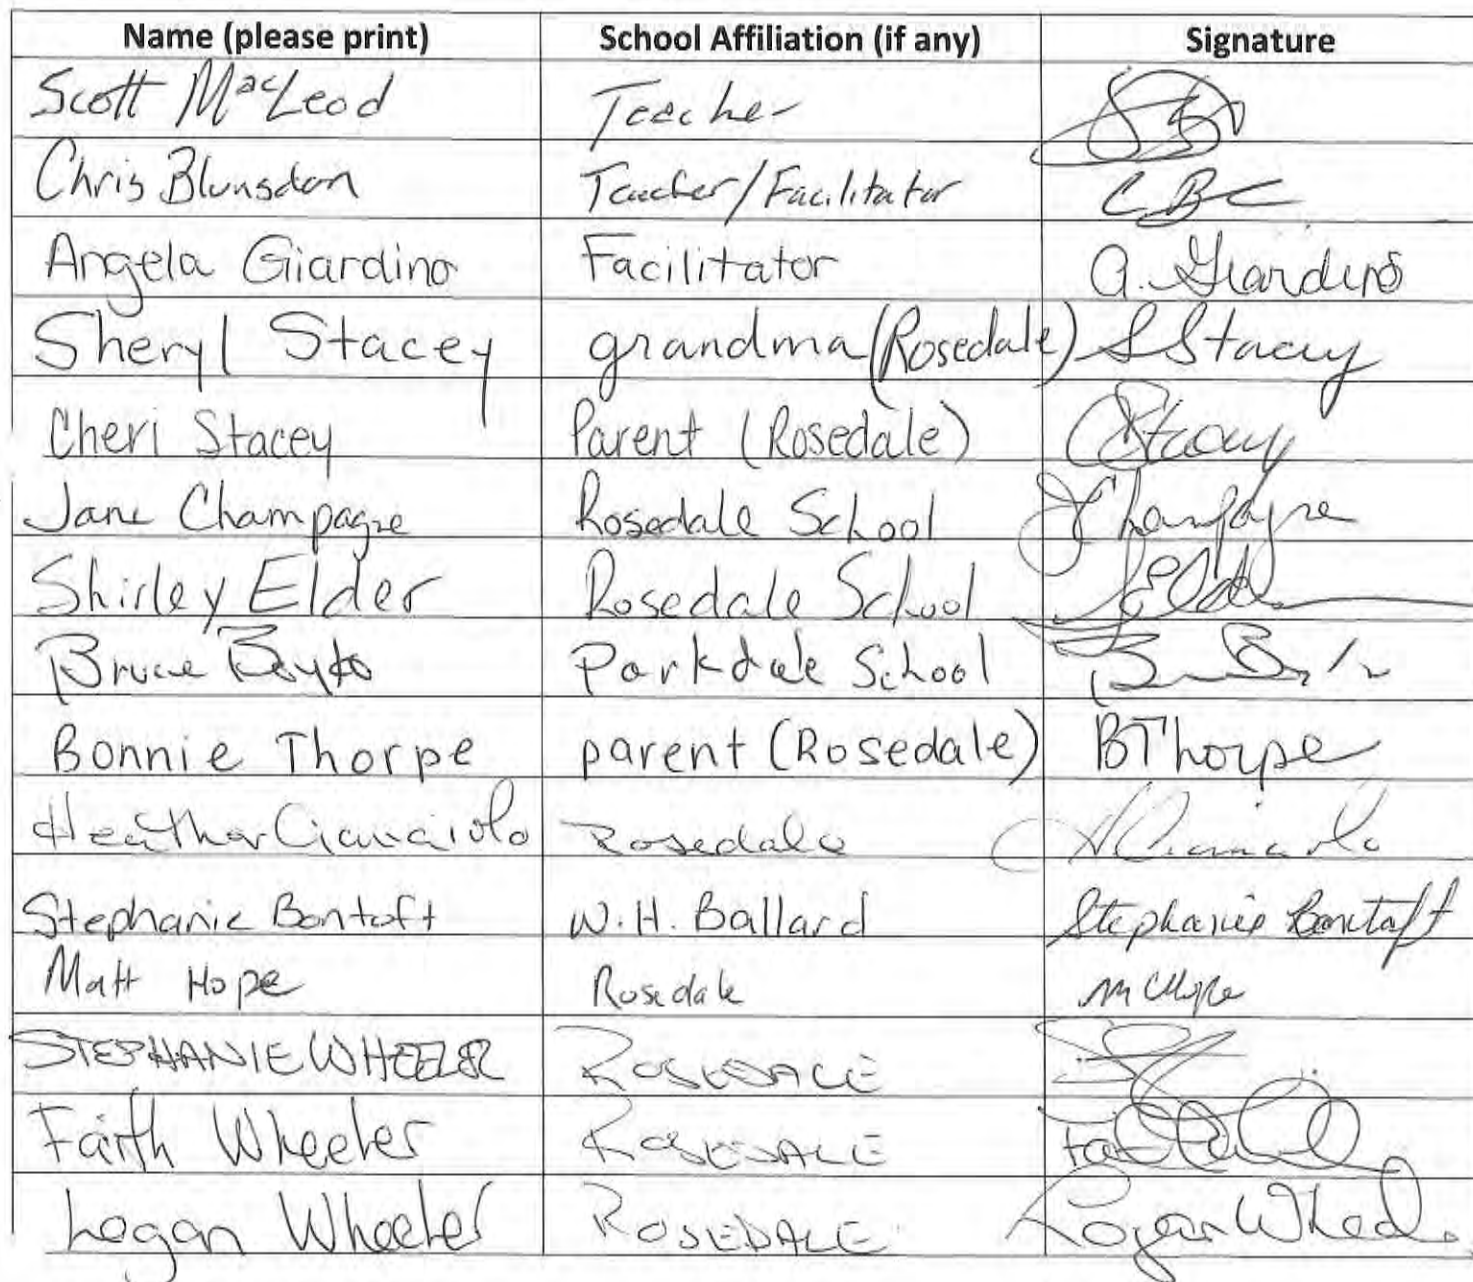 Name (please print) School Affiliation (if any) Signature
Scott MacLeod Teacher
Chris Blunsdon Teacher/Facilitator CB
Angela Giardino Facilitator A. Giardino
Sheryl Stacey grandma (Rosedale) S Stacey
Cheri Stacey Parent (Rosedale) CStacey
Jane Champagne Rosedale School JChampagne
Shirley Elder Rosedale School SElder
Bruce Parkdale School
Bonnie Thorpe parent (Rosedale) BThorpe
Heather Cianciolo Rosedale HCianciolo
Stephanie Bontoft W.H. Ballard Stephanie Bontoft
Matt Hope Rosedale
STEPHANIE WHEELER ROSEDALE
Faith Wheeler ROSEDALE
Logan Wheeler ROSEDALE Logan Wheeler